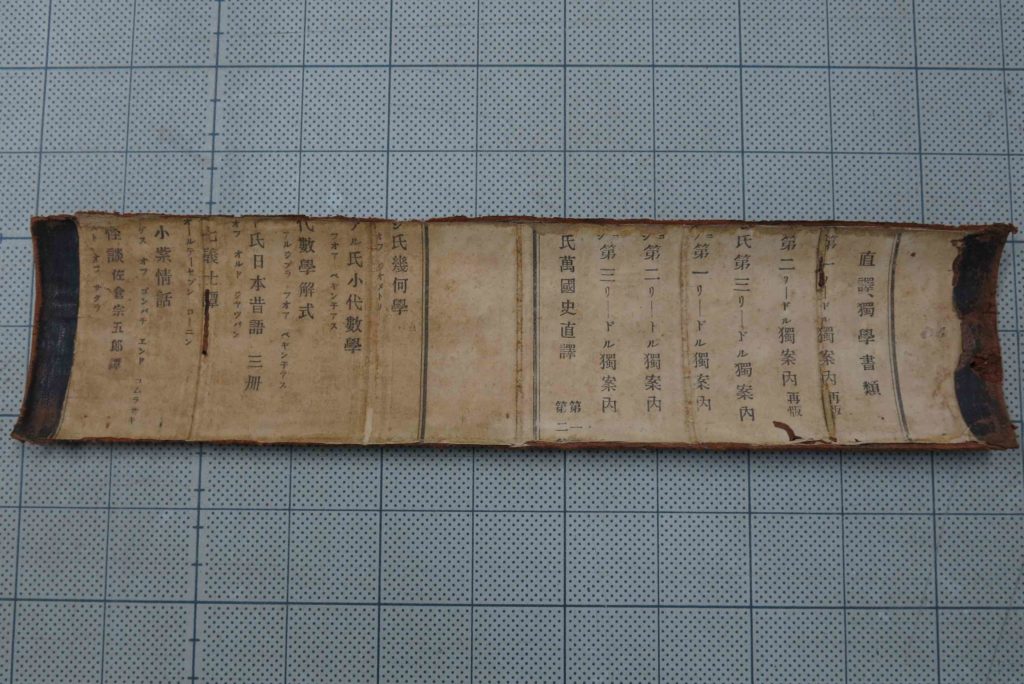 直譯、獨學書類
第一リードル獨案內 再版
第二リードル獨案內 再版
氏第三リードル獨案內
第一リードル獨案內
第二リードル獨案內
第三リードル獨案內
氏萬國史直譯 第一 第二
氏幾何學
オフ ジオメトリ
アル氏小代數學
フオア ベキンナアス
代數學解式
アルジブラ フオア ベキンナアス
氏日本昔語 三册
オフ オルド ジヤッパン
七義士譚
オールテーセブン ローニン
小紫情話
オフ ゴンパチ エンド コムラサキ
怪談佐倉宗五郎譚
オフ サクラ